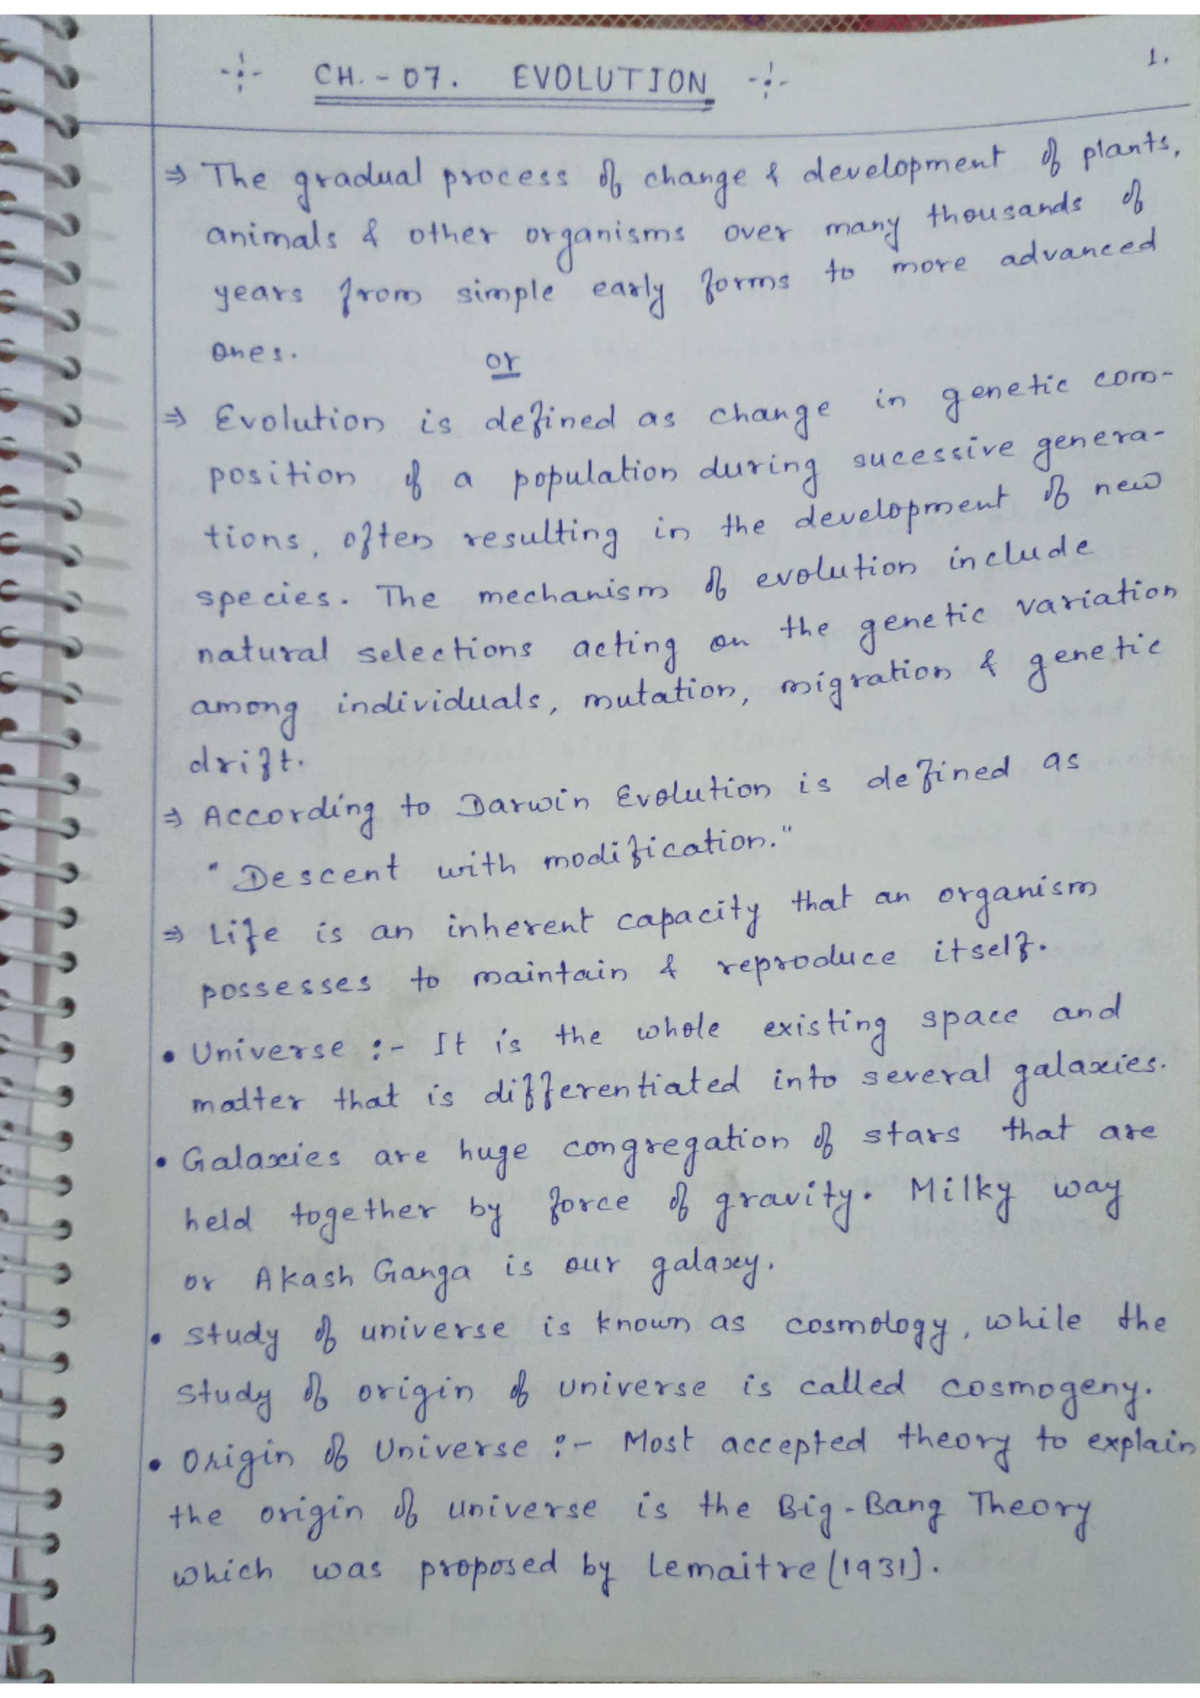 CH. - 07. EVOLUTION
1.
⇒ The gradual process of change & development of plants,
animals & other organisms over many thousands of
years from simple early forms to more advanced
ones.
or
⇒ Evolution is defined as change in genetic com-
position of a population during sucessive genera-
tions, often resulting in the development of new
species. The mechanism of evolution include
natural selections acting on the genetic variation
among individuals, mutation, migration & genetic
drift.
⇒ According to Darwin Evolution is defined as
"Descent with modification."
⇒ Life is an inherent capacity that an organism
possesses to maintain & reproduce itself.
• Universe :- It is the whole existing space and
matter that is differentiated into several galaxies.
• Galaxies are huge congregation of stars that are
held together by force of gravity. Milky way
or Akash Ganga is our galaxy.
• study of universe is known as cosmology, while the
study of origin of universe is called cosmogeny.
• Origin of Universe :- Most accepted theory to explain
the origin of universe is the Big-Bang Theory
which was proposed by Lemaitre (1931).